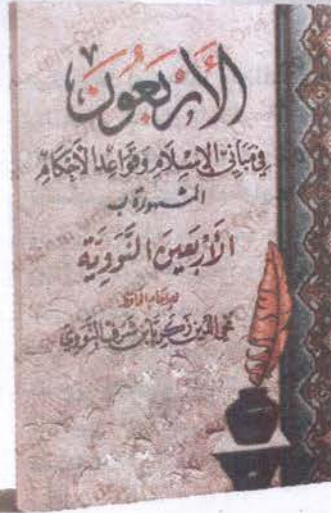 الأَرْبَعُونَ
في مباني الإسلام وقواعد الأحكام
المشهورة ب
الأَرْبَعِينَ النَّوَوِيَّة
للإمام الحافظ
محي الدين زكريا بن شرف النووي